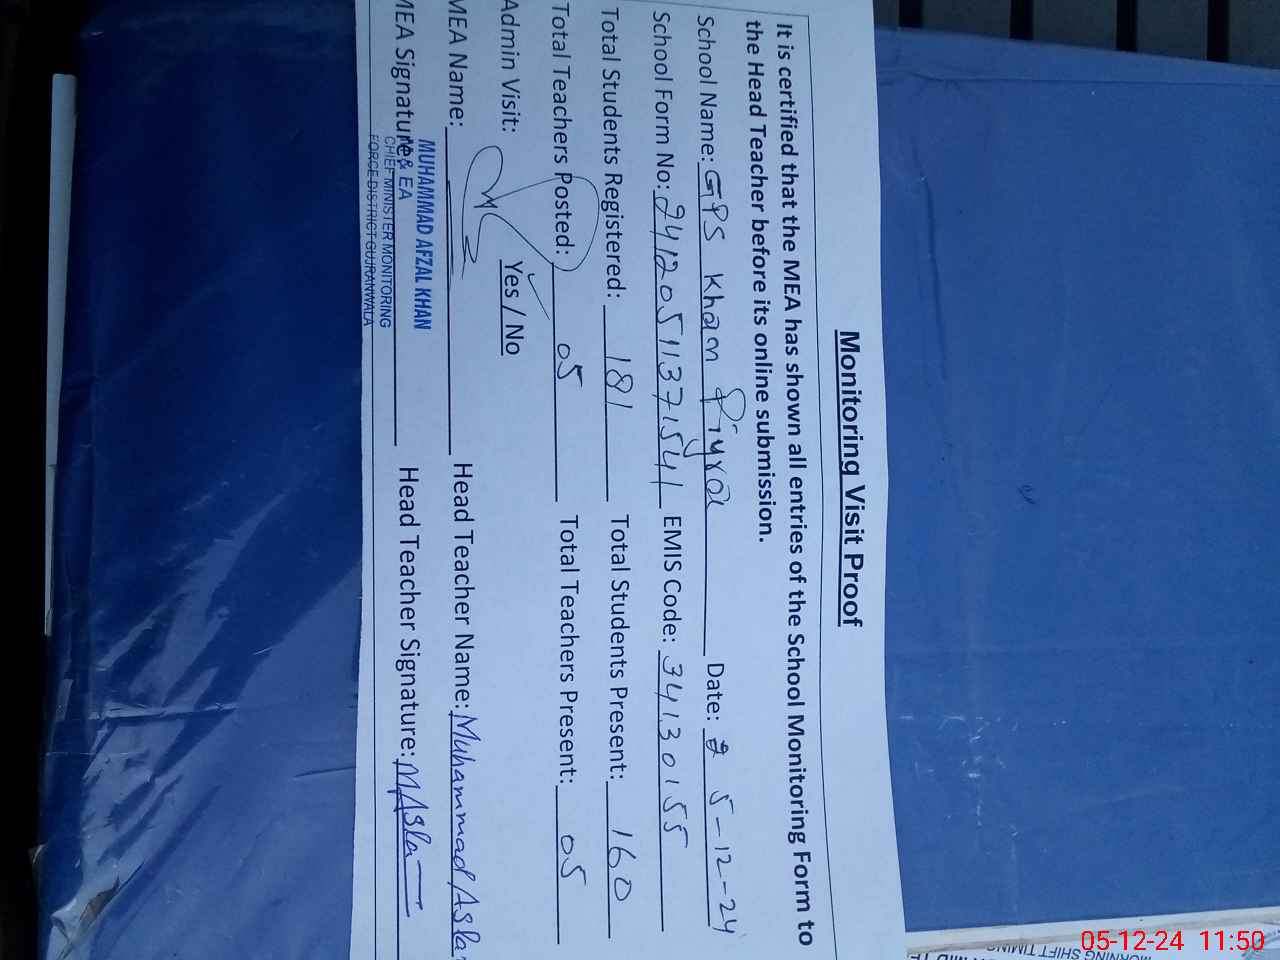 Monitoring Visit Proof
It is certified that the MEA has shown all entries of the School Monitoring Form to
the Head Teacher before its online submission.
School Name: GPS Khan Piyra Date: 5-12-24
School Form No: 24120511371541 EMIS Code: 34130155
Total Students Registered: 181 Total Students Present: 160
Total Teachers Posted: 05 Total Teachers Present: 05
Admin Visit: Yes / No
MEA Name: Head Teacher Name: Muhammad Asla
MUHAMMAD AFZAL KHAN
MEA Signature: Head Teacher Signature: MAsla
M & EA
CHIEF MINISTER MONITORING
FORCE DISTRICT GUJRANWALA
MORNING SHIFT TIMING
05-12-24 11:50